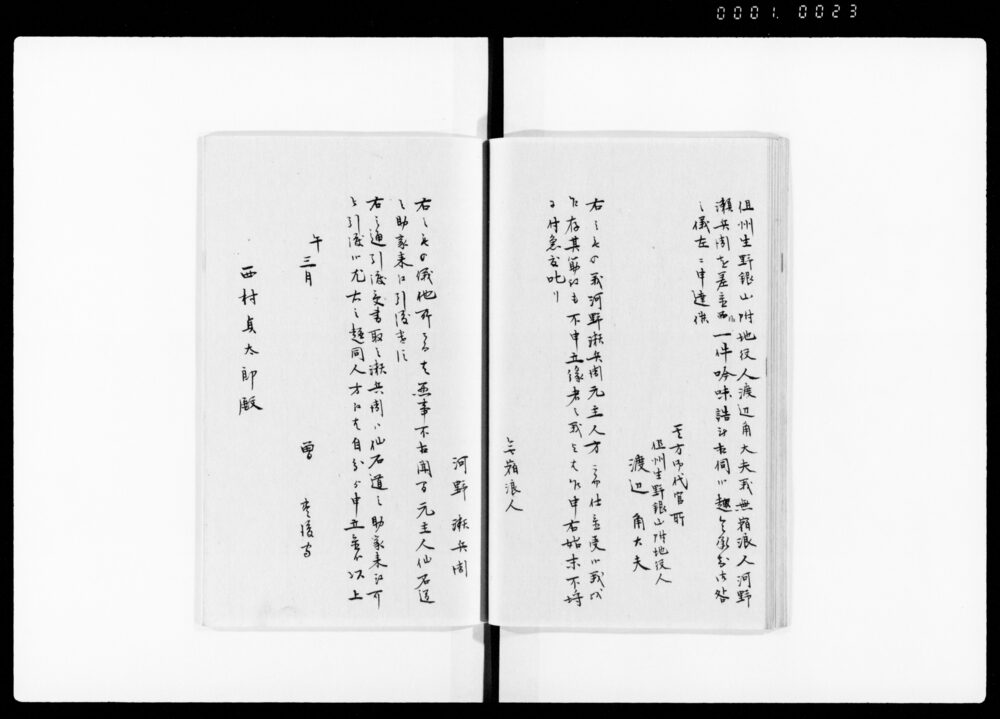 0001. 0023
但州生野銀山附地役人渡辺角大夫義無宿浪人河野
瀬兵衛を差置候一件吟味詰御書相伺候趣令承知御咎
之儀左ニ申達候
其方御代官所
但州生野銀山附地役人
渡辺角大夫
右之もの義河野瀬兵衛元主人方ニ而仕置受候義ハ
乍存其筋江も不申立
乍申右始末不埒
ニ付急度叱リ
無宿浪人
河野瀬兵衛
右之もの儀他所ニおゐて悪事不相聞間元主人仙石道
之助家来江引渡遣ス
右之通引渡受書取之瀬兵衛ハ仙石道之助家来江可
被引渡候尤右之趣同人方江も自分より申立置候以上
午三月
曽 豊後守
西村貞太郎殿